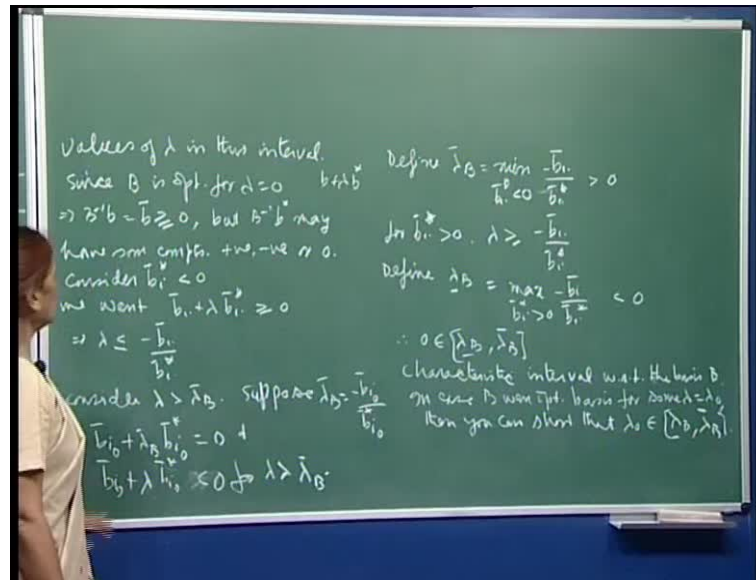 values of λ in this interval.
Since B is opt. for λ=0 b+λb*
⇒ B⁻¹b = b̄ ≥ 0, but B⁻¹b* may
have some compts. +ve, -ve or 0.
Consider b̄ᵢ* < 0
we want b̄ᵢ + λ b̄ᵢ* ≥ 0
⇒ λ ≤ -b̄ᵢ / b̄ᵢ*
Consider λ > λ̄_B. Suppose λ̄_B = -b̄ᵢ₀ / b̄ᵢ₀*
b̄ᵢ₀ + λ̄_B b̄ᵢ₀* = 0 &
b̄ᵢ₀ + λ b̄ᵢ₀* < 0 for λ > λ̄_B.
Define λ̄_B = min b̄ᵢ*<0 -b̄ᵢ / b̄ᵢ* > 0
for b̄ᵢ* > 0. λ ≥ -b̄ᵢ / b̄ᵢ*
Define λ̲_B = max b̄ᵢ*>0 -b̄ᵢ / b̄ᵢ* < 0
∴ 0 ∈ [λ̲_B, λ̄_B]
Characteristic interval w.r.t. the basis B.
In case B were opt. basis for some λ=λ₀
then you can show that λ₀ ∈ [λ̲_B, λ̄_B].